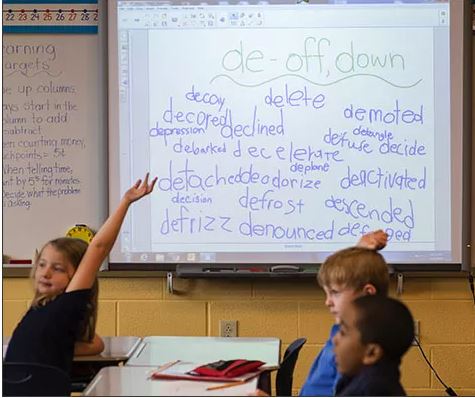 22 23 24 25 26 27 28
arning
argets
e up columns
ays start in the
olumn to add
subtract
en counting money,
uckpoints = 5¢
When telling time,
nt by 5s for minutes
Decide what the problem
s asking.
de - off, down
decoy delete
decored declined demoted
depression detangle
debarked decelerate defuse decide
deplane
detached deodorize deactivated
decision defrost descended
defrizz denounced